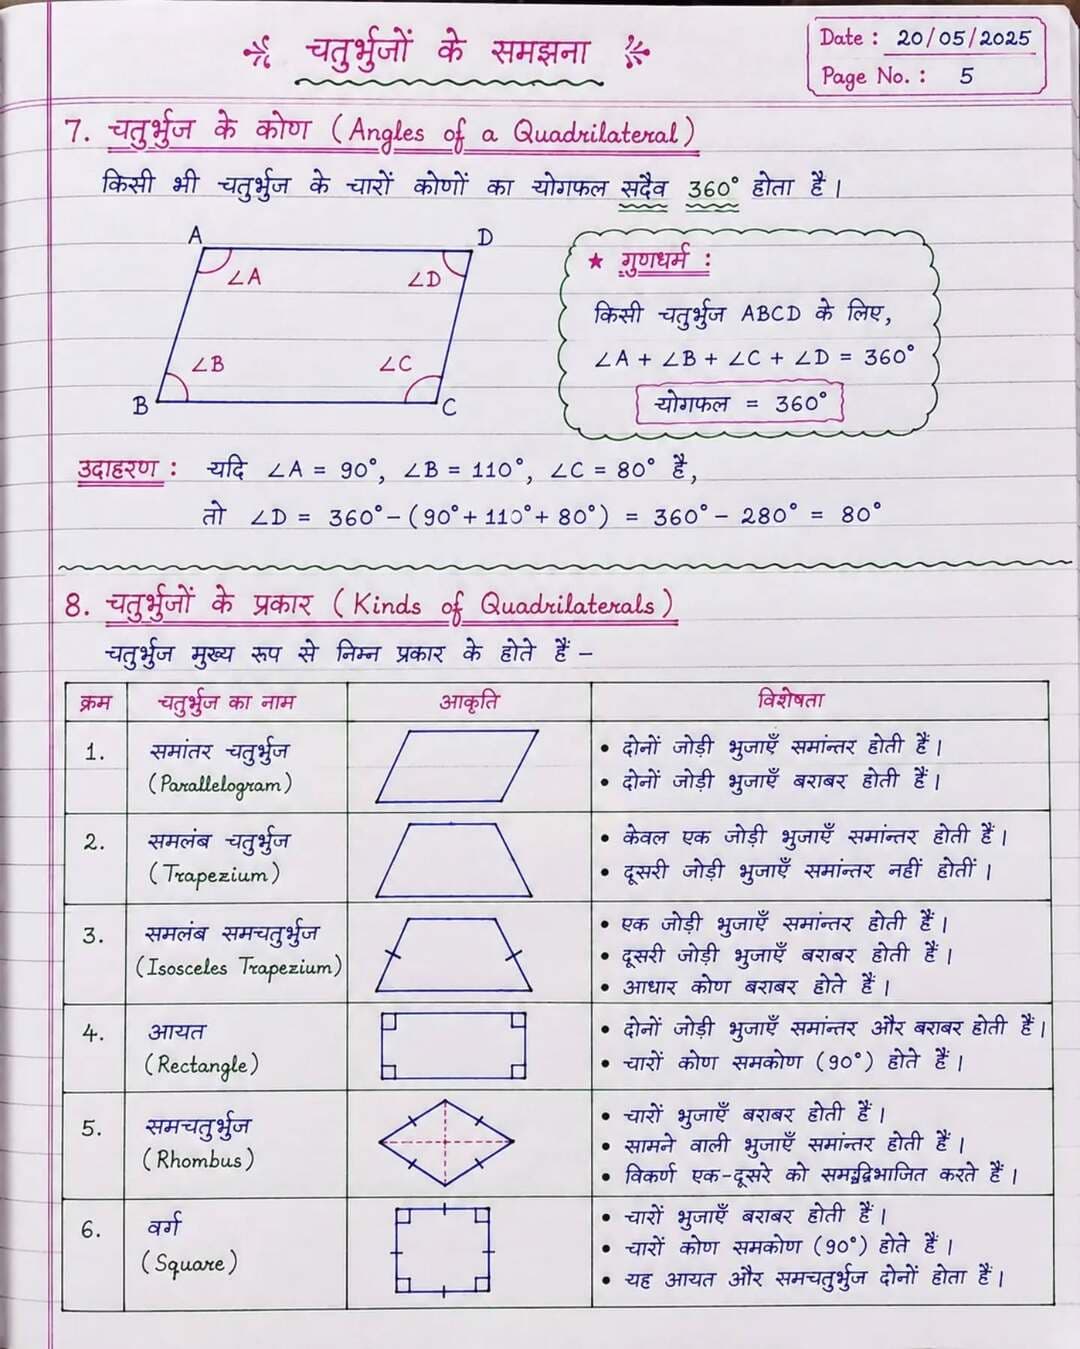 चतुर्भुजों के समझना
Date : 20/05/2025
Page No. : 5
7. चतुर्भुज के कोण (Angles of a Quadrilateral)
किसी भी चतुर्भुज के चारों कोणों का योगफल सदैव 360° होता है।
A
D
∠A
∠D
∠B
∠C
B
C
★ गुणधर्म :
किसी चतुर्भुज ABCD के लिए,
∠A + ∠B + ∠C + ∠D = 360°
योगफल = 360°
उदाहरण : यदि ∠A = 90°, ∠B = 110°, ∠C = 80° है,
तो ∠D = 360° - (90° + 110° + 80°) = 360° - 280° = 80°
8. चतुर्भुजों के प्रकार (Kinds of Quadrilaterals)
चतुर्भुज मुख्य रूप से निम्न प्रकार के होते हैं –
क्रम चतुर्भुज का नाम आकृति विशेषता
1. समांतर चतुर्भुज
(Parallelogram)
• दोनों जोड़ी भुजाएँ समांन्तर होती हैं।
• दोनों जोड़ी भुजाएँ बराबर होती हैं।
2. समलंब चतुर्भुज
(Trapezium)
• केवल एक जोड़ी भुजाएँ समांन्तर होती हैं।
• दूसरी जोड़ी भुजाएँ समांन्तर नहीं होतीं।
3. समलंब समचतुर्भुज
(Isosceles Trapezium)
• एक जोड़ी भुजाएँ समांन्तर होती हैं।
• दूसरी जोड़ी भुजाएँ बराबर होती हैं।
• आधार कोण बराबर होते हैं।
4. आयत
(Rectangle)
• दोनों जोड़ी भुजाएँ समांन्तर और बराबर होती हैं।
• चारों कोण समकोण (90°) होते हैं।
5. समचतुर्भुज
(Rhombus)
• चारों भुजाएँ बराबर होती हैं।
• सामने वाली भुजाएँ समांन्तर होती हैं।
• विकर्ण एक-दूसरे को करते हैं।
6. वर्ग
(Square)
• चारों भुजाएँ बराबर होती हैं।
• चारों कोण समकोण (90°) होते हैं।
• यह आयत और समचतुर्भुज दोनों होता हैं।